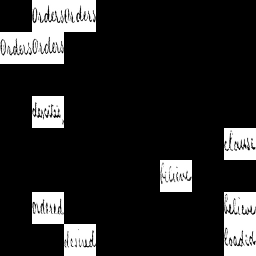 Orders Orders
Orders Orders
clause
believe
ordered believe
desired loadid